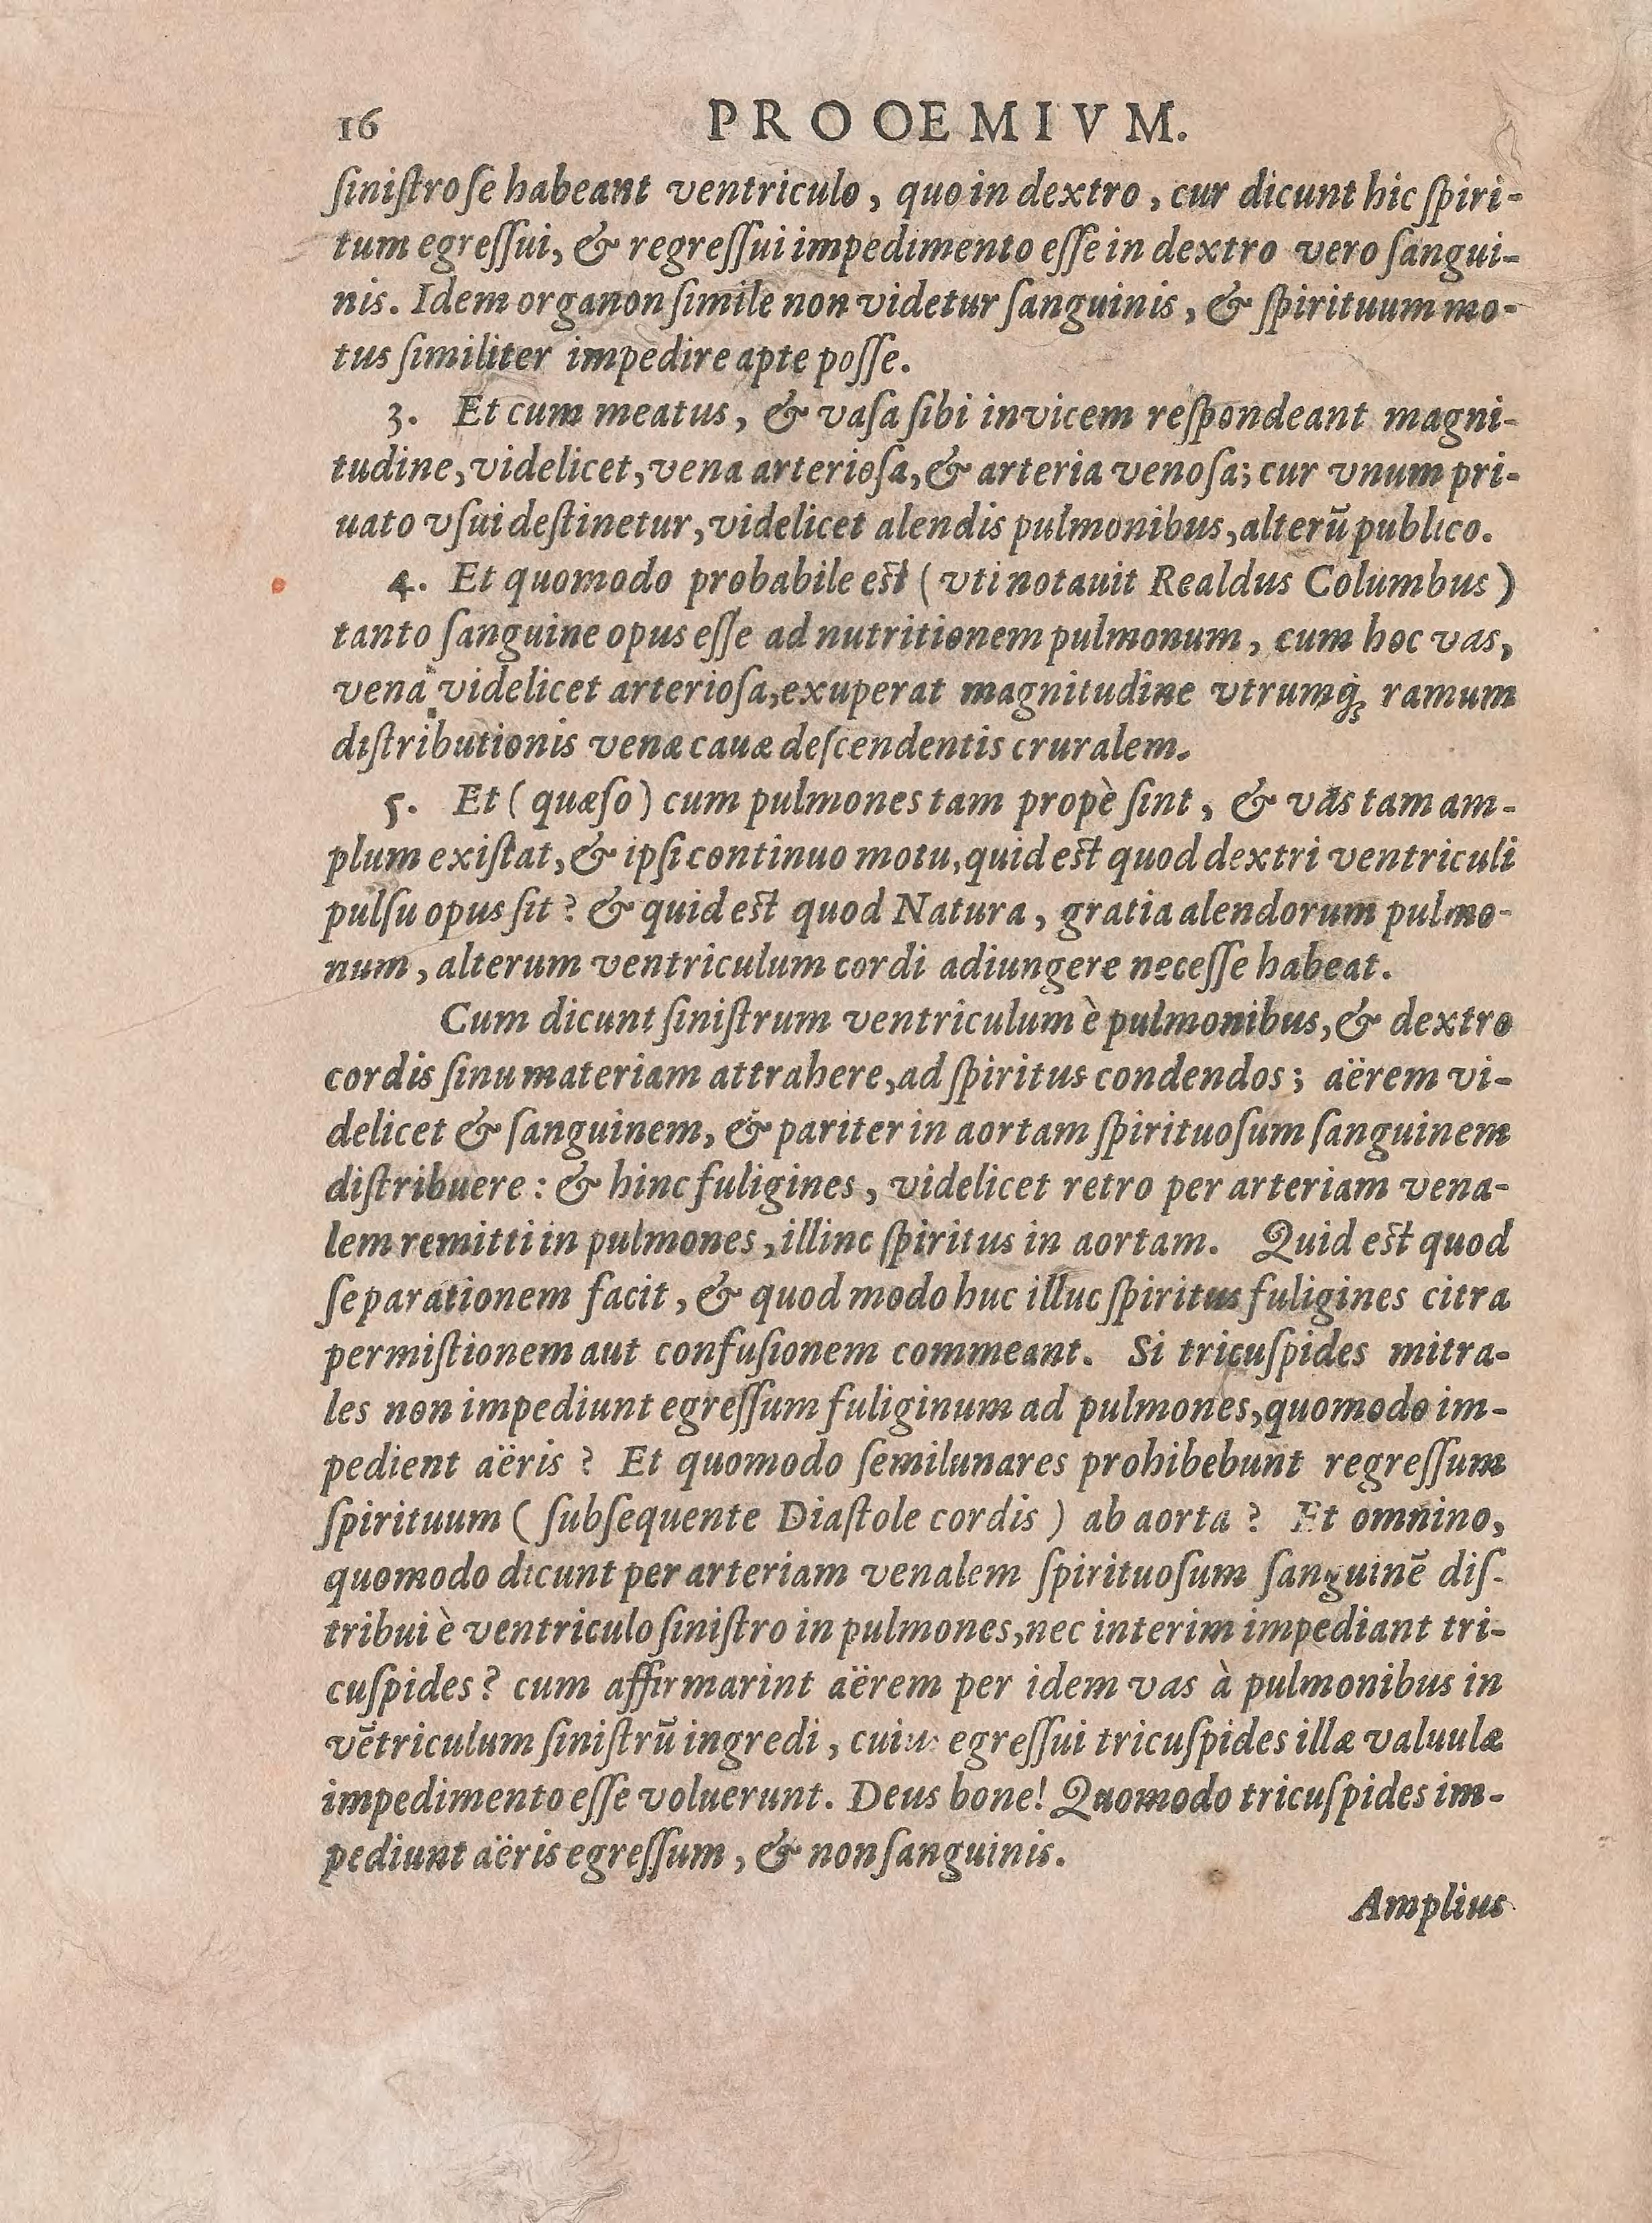 16 PROOEMIVM.
ſiniſtro ſe habeant ventriculo, quo in dextro, cur dicunt hic ſpiri-
tum egreſſui, & regreſſui impedimento eſſe in dextro vero ſangui-
nis. Idem organon ſimile non videtur ſanguinis, & ſpirituum mo-
tus ſimiliter impedire apte poſſe.
3. Et cum meatus, & vaſa ſibi invicem reſpondeant magni-
tudine, videlicet, vena arterioſa, & arteria venoſa; cur vnum pri-
uato vſui deſtinetur, videlicet alendis pulmonibus, alterū publico.
4. Et quomodo probabile eſt (vti notauit Realdus Columbus)
tanto ſanguine opus eſſe ad nutritionem pulmonum, cum hoc vas,
vena videlicet arterioſa, exuperat magnitudine vtrumq́; ramum
diſtributionis venæ cauæ deſcendentis cruralem.
5. Et (quæſo) cum pulmones tam propè ſint, & vas tam am-
plum exiſtat, & ipſi continuo motu, quid eſt quod dextri ventriculi
pulſu opus ſit? & quid eſt quod Natura, gratia alendorum pulmo-
num, alterum ventriculum cordi adiungere neceſſe habeat.
Cum dicunt ſiniſtrum ventriculum è pulmonibus, & dextro
cordis ſinu materiam attrahere, ad ſpiritus condendos; aërem vi-
delicet & ſanguinem, & pariter in aortam ſpirituoſum ſanguinem
diſtribuere: & hinc fuligines, videlicet retro per arteriam vena-
lem remitti in pulmones, illinc ſpiritus in aortam. Quid eſt quod
ſeparationem facit, & quod modo huc illuc ſpiritus fuligines citra
permiſtionem aut confuſionem commeant. Si tricuſpides mitra-
les non impediunt egreſſum fuliginum ad pulmones, quomodo im-
pedient aëris? Et quomodo ſemilunares prohibebunt regreſſum
ſpirituum (ſubſequente Diaſtole cordis) ab aorta? Et omnino,
quomodo dicunt per arteriam venalem ſpirituoſum ſanguinē diſ-
tribui è ventriculo ſiniſtro in pulmones, nec interim impediant tri-
cuſpides? cum affirmarint aërem per idem vas à pulmonibus in
vētriculum ſiniſtrū ingredi, cuius egreſſui tricuſpides illæ valuulæ
impedimento eſſe voluerunt. Deus bone! Quomodo tricuſpides im-
pediunt aëris egreſſum, & non ſanguinis.
Amplius